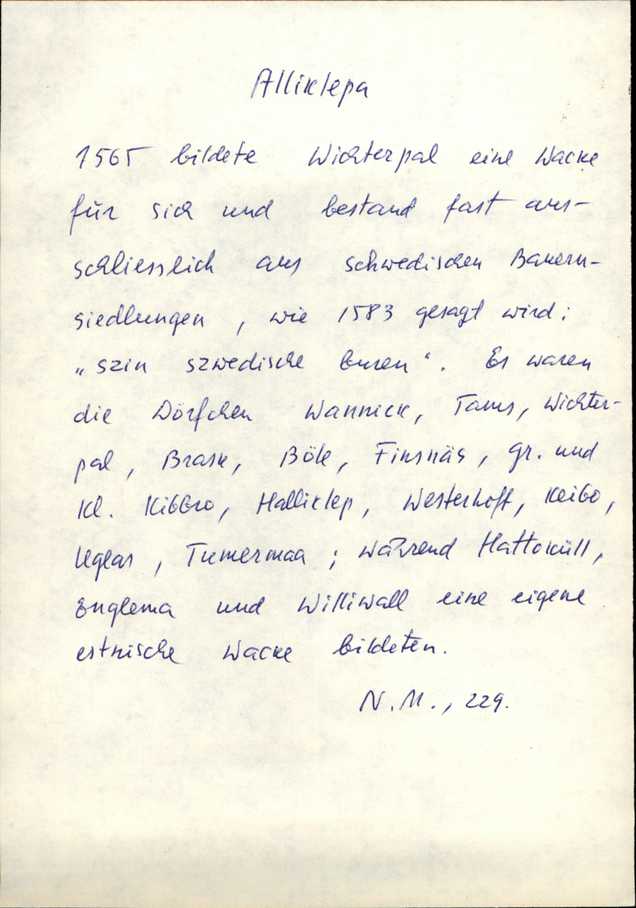 Alliklepa
1565 bildete Wichterpal eine Wacke
für sich und bestand fast aus-
schliesslich aus schwedischen Bauern-
siedlungen, wie 1583 gesagt wird:
„szin szwedische buren“. Es waren
die Dörfchen Wannick, Tams, Wichter-
pal, Brask, Böle, Finsnäs, Gr. und
Kl. Kibbro, Halliklep, Westerhoff, Keibo,
Uglas, Tumermaa; während Hattoküll,
Englema und Williwall eine eigene
estnische Wacke bildeten.
N.M., 229.